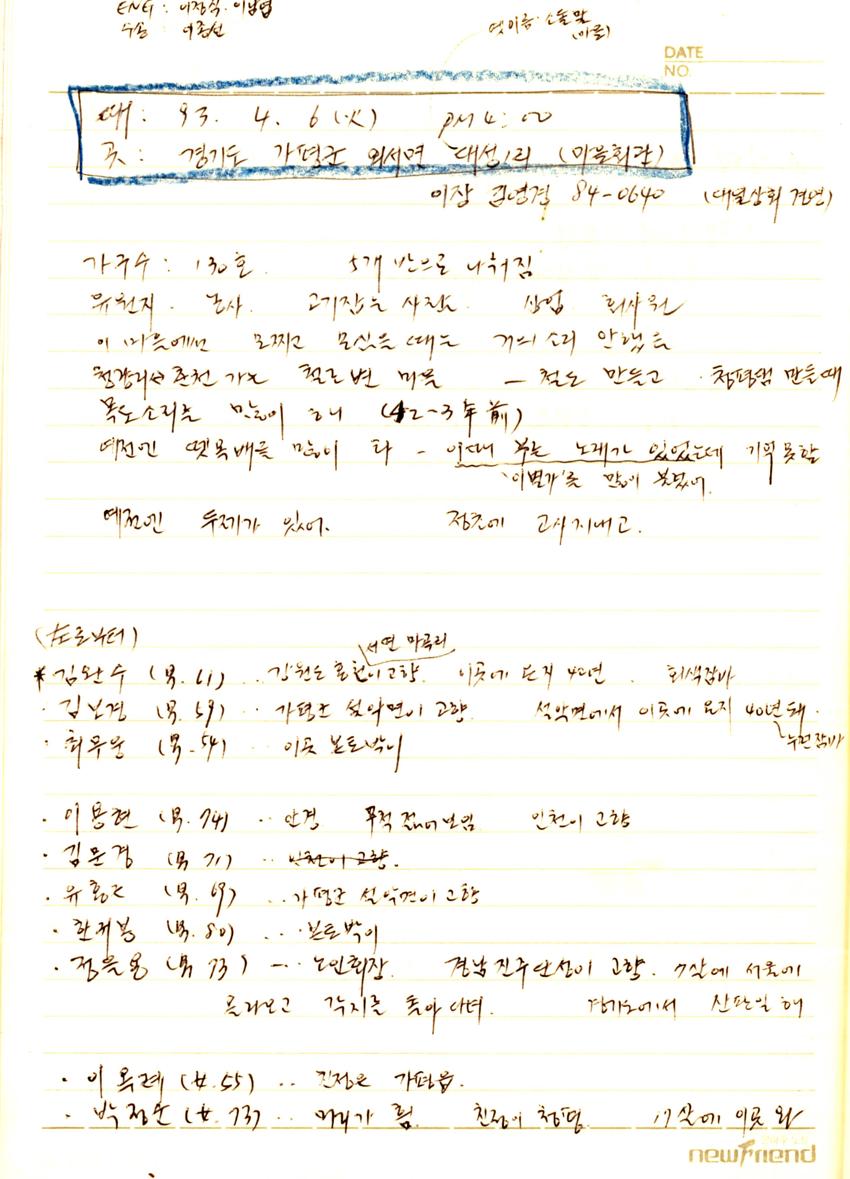 ENG : 이장식.
수송 : 이종선
옛이름. 소돌말
(마을)
DATE
NO.
때 : 93. 4. 6 (火) PM 4:00
곳 : 경기도 가평군 외서면 대성1리 (마을회관)
이장 김영경 84-0640 (대일상회 건너)
가구수 : 130호. 5개 반으로 나눠짐
유원지. 농사. 고기잡는 사람도. 상업 회사원
이 마을에선 모찌고 모심을 때는 거의 소리 안했음
청량리서 춘천 가는 철로변 마을 — 철도 만들고 · 청평댐 만들때
목도소리를 많이 하니 (42-3年前)
예전엔 뗏목배를 많이 타 - 이때 부른 노래가 있었는데 기억못함
'이별가'를 많이 불렀어.
예전엔 두레가 있어. 정초에 고사지내고.
(左로부터)
서면 마곡리
* 김완수 (男. 61) .. 강원도 홍천이 고향. 이곳에 온지 40년. 회색잠바
· 김보경 (男. 59) .. 가평군 설악면이 고향. 설악면에서 이곳에 온지 40년 돼.
누런잠바
· 최무웅 (男. 54) .. 이곳 본토박이
· 이용현 (男. 74) .. 안경 무척 젊어보임 인천이 고향
· 김문경 (男 71) .. 인천이 고향.
· 유흥근 (男. 69) .. 가평군 설악면이 고향
· 한제봉 (男. 80) ... 본토박이
· 정을용 (男 73) -.. 노인회장. 경남진주단성이 고향. 7살에 서울에
올라오고 각지를 돌아다녀. 경기도에서 산판일 해
· 이옥례 (女. 55) .. 친정은 가평읍.
· 박정순 (女. 73) .. 머리가 흼. 친정이 청평. 17살에 이곳 와
newFriend